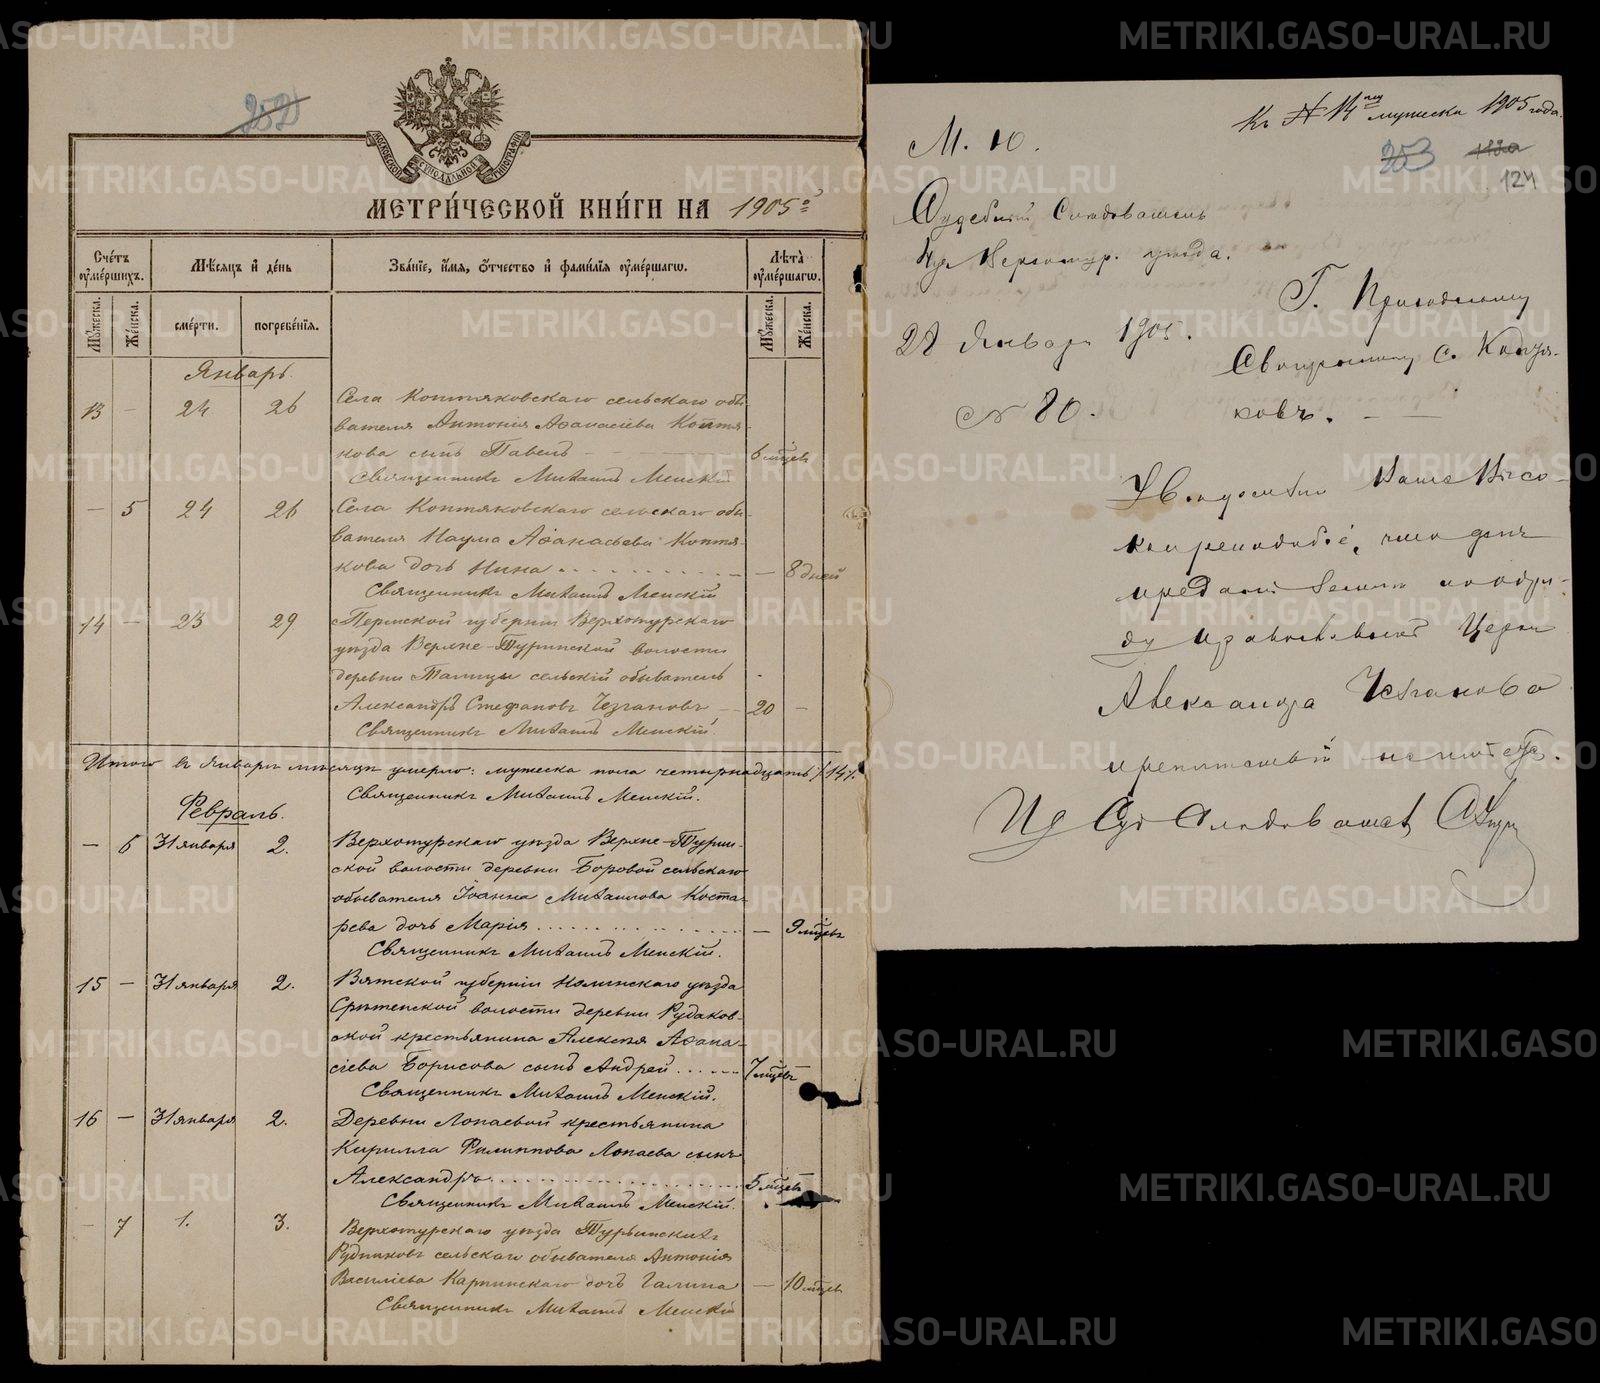 252
МОСКОВСКОЙ СѴНОДАЛЬНОЙ ТИПОГРАФІИ
МЕТРИ́ЧЕСКОЙ КНИ́ГИ НА 1905 г.
Сче́тъ ᲂу҆ме́ршихъ.
Мѣ́сяцъ и҆ де́нь
Зва́нїе, и҆́мя, ѻ҆́тчество и҆ фами́лїя ᲂу҆ме́ршагѡ.
Лѣ́та ᲂу҆ме́ршагѡ.
Мꙋ́жеска.
Же́нска.
сме́рти.
погребе́нїя.
Мꙋ́жеска.
Же́нска.
Январь.
13 - 24 26 Села Коптяковскаго сельскаго обы-
вателя Антонія Аѳанасіева Коптя-
кова сынъ Павелъ - - - 6 мцевъ
Священникъ Михаилъ Менскій
- 5 24 26 Села Коптяковскаго сельскаго обы-
вателя Наума Аѳанасьева Коптя-
кова дочь Нина . . . . . . . . . . - - 8 дней
Священникъ Михаилъ Менскій
14 - 23 29 Пермской губерніи Верхотурскаго
уѣзда Верхне-Туринской волости
деревни Талицы сельскій обыватель
Александръ Стефановъ Чезгановъ - - 20 -
Священникъ Михаилъ Менскій.
Итого въ Январѣ мѣсяцѣ умерло: мужеска пола четырнадцать /14/.
Священникъ Михаилъ Менскій.
Февраль.
- 6 31 января 2. Верхотурскаго уѣзда Верхне-Турин-
ской волости деревни Боровой сельскаго
обывателя Іоанна Михаилова Коста-
рева дочь Марія . . . . . . . . . . - 9 мцевъ
Священникъ Михаилъ Менскій.
15 - 31 января 2. Вятской губерніи Нолинскаго уѣзда
Срѣтенской волости деревни Рудаков-
ской крестьянина Алексѣя Аѳана-
сіева Борисова сынъ Андрей . . . . . 7 мцевъ
Священникъ Михаилъ Менскій.
16 - 31 января 2. Деревни Лопаевой крестьянина
Кирилла Филиппова Лопаева сынъ
Александръ . . . . . . . . . . . . 5 мцевъ
Священникъ Михаилъ Менскій.
- 7 1. 3. Верхотурскаго уѣзда Турьинскихъ
Рудниковъ сельскаго обывателя Антонія
Василіева Карпинскаго дочь Галина - 10 мцевъ
Священникъ Михаилъ Менскій
Къ № 14 мужеска 1905 года.
253
124
М. Ю.
Судебный Слѣдователь
Верхотур. уѣзда.
28 Январь 1905.
№ 80.
Г. Приходскому
Священнику с. Коптя-
ковъ. - -
Увѣдомляю Ваше Высо-
копреподобіе, что для
преданія землѣ по обря-
ду православной Церкви
Александра Чезганова
препятствій не имѣется.
Суд Слѣдователь
METRIKI.GASO-URAL.RU